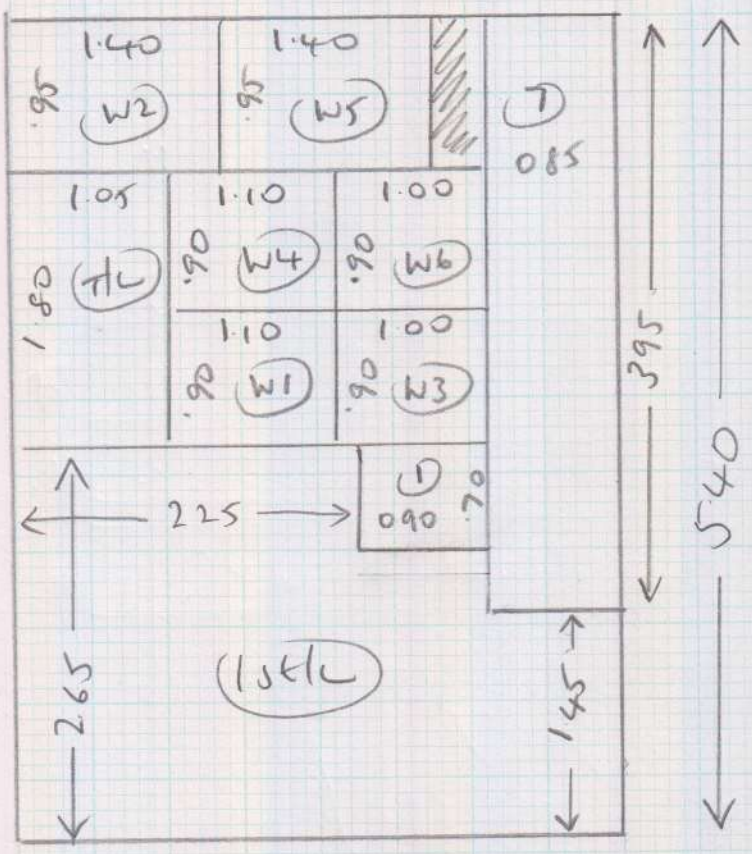 1.40
.95
W2
1.40
.95
W5
T
085
1.05
1.80
T/L
1.10
.90
W4
1.00
.90
W6
1.10
.90
W1
1.00
.90
W3
395
540
225
090
.70
265
1st/L
145